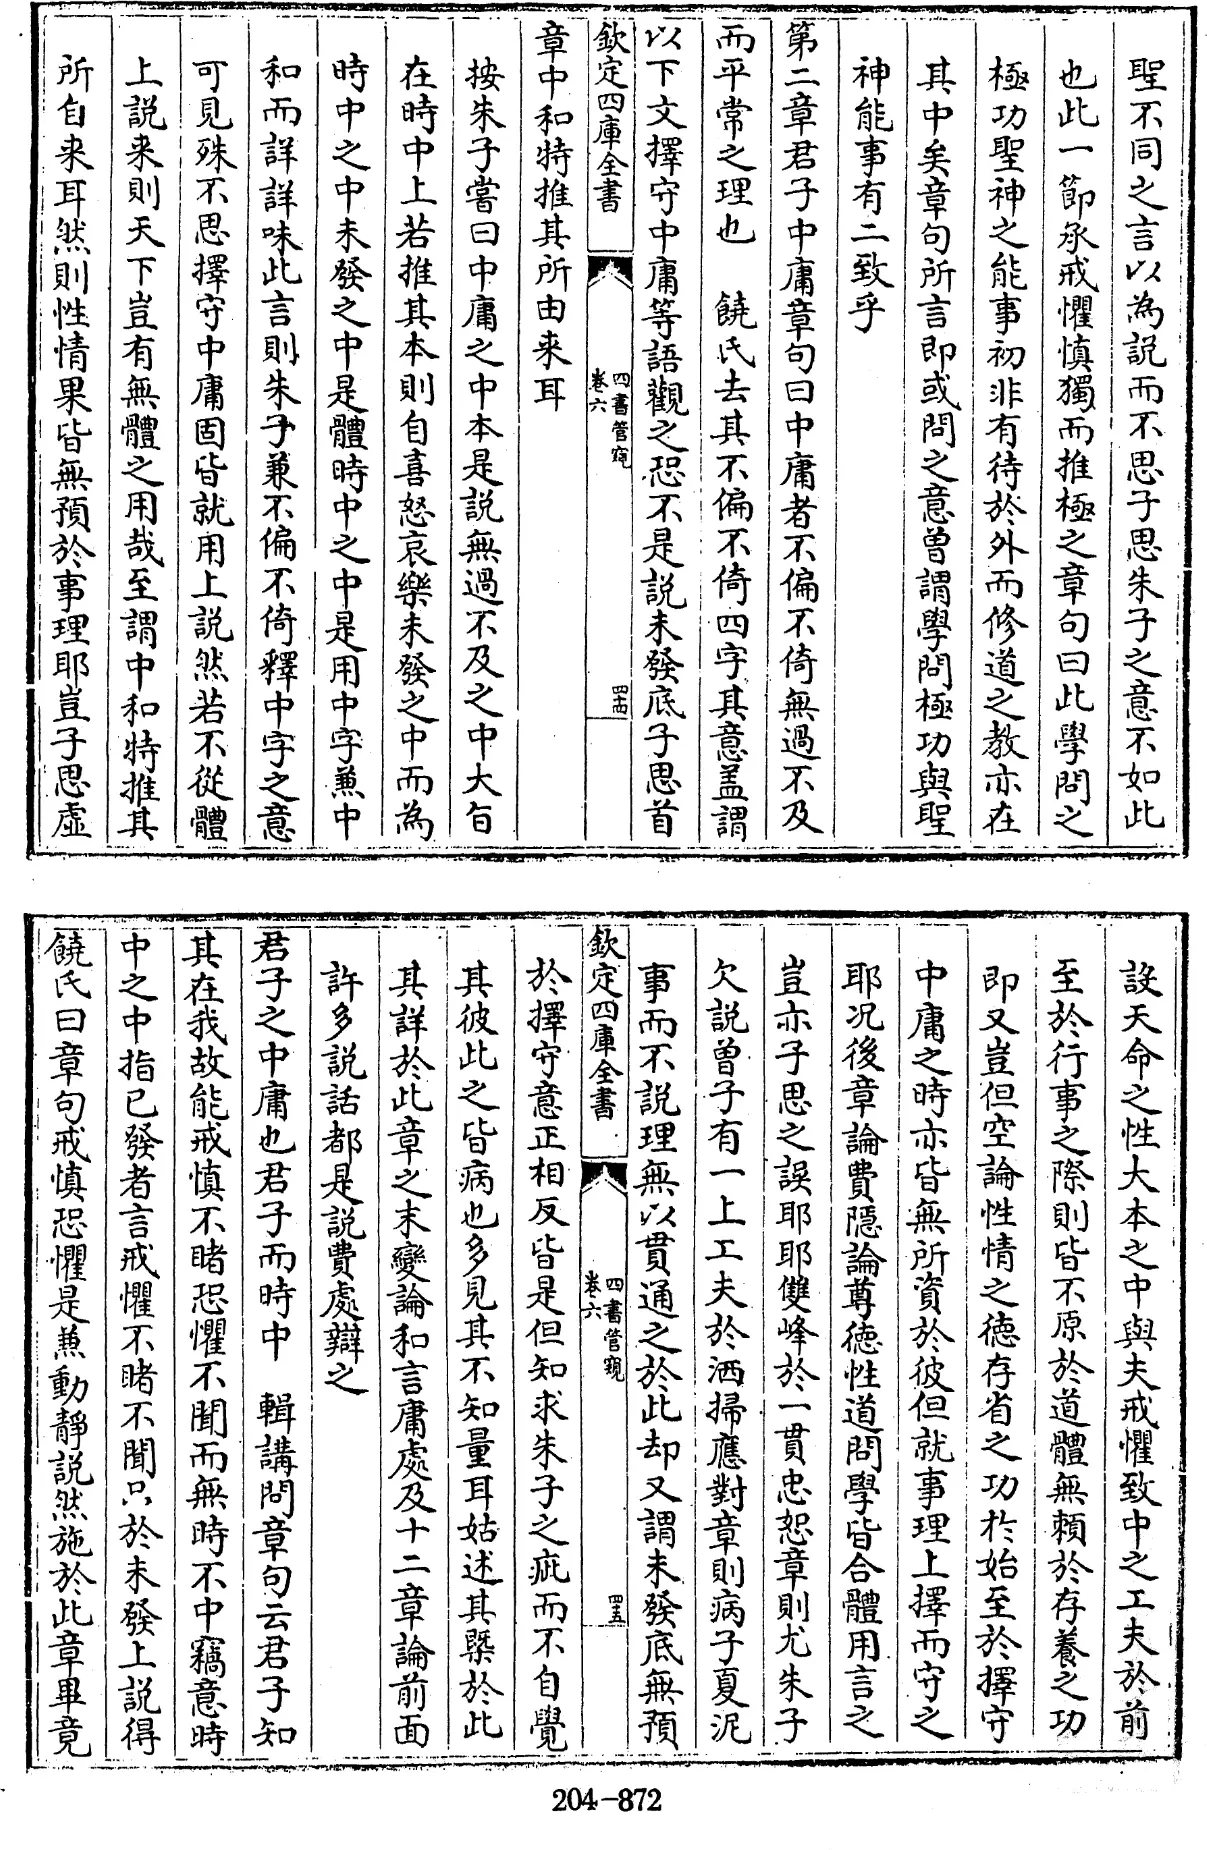 聖不同之言以為説而不思子思朱子之意不如此
也此一節承戒懼慎獨而推極之章句曰此學問之
極功聖神之能事初非有待於外而修道之教亦在
其中矣章句所言即或問之意曽謂學問極功與聖
神能事有二致乎
第二章君子中庸章句曰中庸者不偏不倚無過不及
而平常之理也 饒氏去其不偏不倚四字其意盖謂
以下文擇守中庸等語觀之恐不是説未發底子思首
欽定四庫全書
四書管窺
卷六
四十四
章中和特推其所由来耳
按朱子嘗曰中庸之中本是説無過不及之中大㫖
在時中上若推其本則自喜怒哀樂未發之中而為
時中之中未發之中是體時中之中是用中字兼中
和而詳詳味此言則朱子兼不偏不倚釋中字之意
可見殊不思擇守中庸固皆就用上説然若不從體
上説来則天下豈有無體之用哉至謂中和特推其
所自来耳然則性情果皆無預於事理耶豈子思虛
設天命之性大本之中與夫戒懼致中之工夫於前
至於行事之際則皆不原於道體無頼於存養之功
即又豈但空論性情之德存省之功於始至於擇守
中庸之時亦皆無所資於彼但就事理上擇而守之
耶况後章論費隱論尊德性道問學皆合體用言之
豈亦子思之誤耶耶雙峰於一貫忠恕章則尤朱子
欠説曽子有一上工夫於洒掃應對章則病子夏泥
事而不説理無以貫通之於此却又謂未發底無預
欽定四庫全書
四書管窺
卷六
四十五
於擇守意正相反皆是但知求朱子之疵而不自覺
其彼此之皆病也多見其不知量耳姑述其槩於此
其詳於此章之末變論和言庸處及十二章論前面
許多説話都是説費處辯之
君子之中庸也君子而時中 輯講問章句云君子知
其在我故能戒慎不睹恐懼不聞而無時不中竊意時
中之中指已發者言戒懼不睹不聞只於未發上説得
饒氏曰章句戒慎恐懼是兼動靜説然施於此章畢竟
204-872